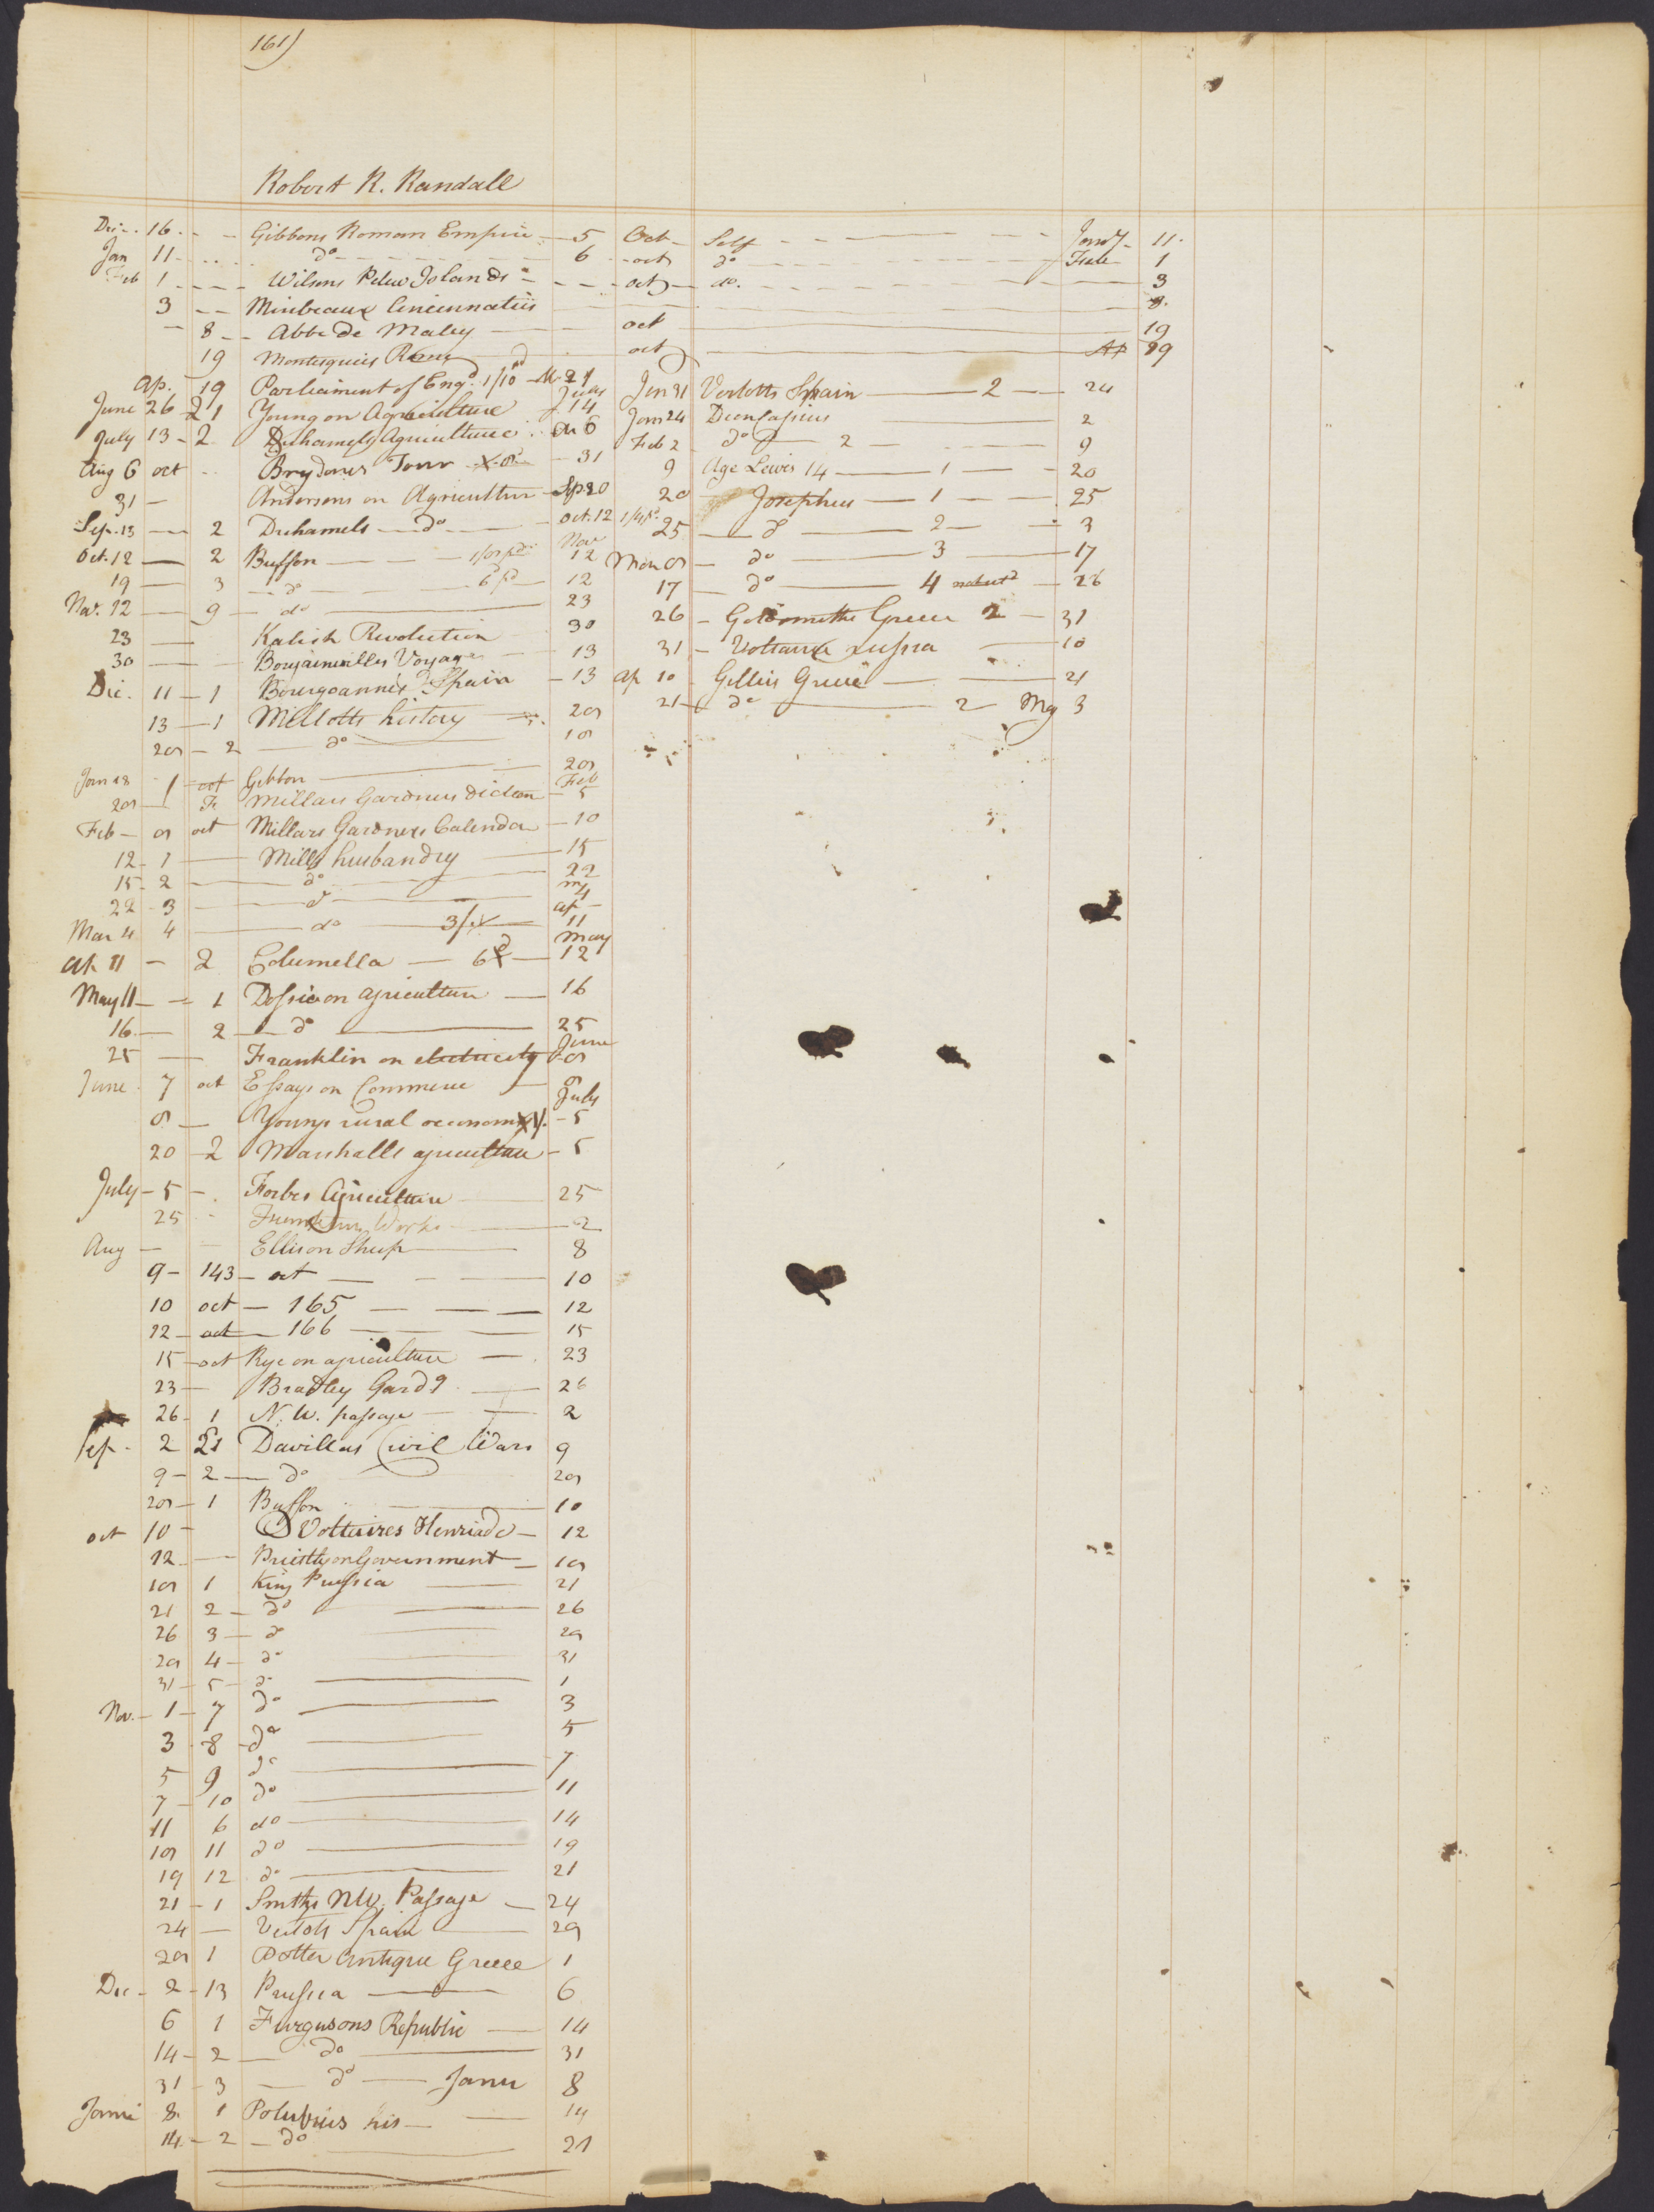 161)
Robert R. Randall
Dec. 16 Gibbons Roman Empire 5 Oct Self Jan'y 11
Jan 11 do 6 oct do Feb 1
Feb 1 Wilsons Pelew Islands oct do. 3
3 Miribeaux Cincinnatiis 8
8 Abbe de Maley oct 19
19 Montesquieis oct Ap 19
Ap. 19 Parliament of Eng'd 1/10 pd M. 21 Jan 31 Vertotts Spain 2 24
June 26 21 Young on Agriculture July 14 Jan 24 Dion Cassius 2
July 13 2 Duhamels Agriculture 6 Feb 2 do 2 9
Aug 6 oct Brydones Tour 31 9 Age Lewis 14 1 20
31 Andersons on Agricultur Sep 20 Josephus 1 25
Sep. 13 2 Duhamels do oct. 12 25 do 2 3
Oct. 12 2 Buffon Nov 12 Mar 8 do 3 17
19 3 do 6 pd 12 17 do 4 26
Nov. 12 9 do 23 26 Goldsmiths Greece 2 31
23 Kalish Revolution 30 31 Voltaire russia 10
30 Bougainvilles Voyage 13 Ap 10 Gillies Greece 21
Dec. 11 1 Bourgoannes Spain 13 21 do 2 My 3
13 1 Millotts history 28
28 2 do 18
Jan 18 1 oct Gibbon 28
28 Fo Millars Gardners diction Feb 5
Feb 8 oct Millars Gardners Calendar 10
12 1 Mills husbandry 15
15 2 do 22
22 3 do m 4
Mar 4 4 do 3/ ap 11
Ap 11 2 Columella 6d May 12
May 11 1 Dossie on agriculture 16
16 2 do 25
25 Franklin on electricity June 8
June 7 oct Essays on Commerce 8
8 Youngs rural oeconomy July 5
20 2 Marshalls agriculture 5
July 5 Forbes Agriculture 25
25 Works 2
Aug Ellis on Sheep 8
9 143 oct 10
10 oct 165 12
12 oct 166 15
15 oct Rye on agriculture 23
23 Bradley Gardg 26
26 1 N. W. passage 2
Sep. 2 1 Davillas Civil Wars 9
9 2 do 28
28 1 Buffon 10
oct 10 Voltaires Henriade 12
12 Priestly on Government 18
18 1 King Prussia 21
21 2 do 26
26 3 do 28
28 4 do 31
31 5 do 1
Nov. 1 7 do 3
3 8 do 5
5 9 do 7
7 10 do 11
11 6 do 14
18 11 do 19
19 12 do 21
21 1 Smiths NW. Passage 24
24 Vertots Spain 29
28 1 Potter Antique Greece 1
Dec 2 13 Prussia 6
6 1 Furgusons Republic 14
14 2 do 31
31 3 do Janu 8
8 1 Polubius his 14
14 2 do 21